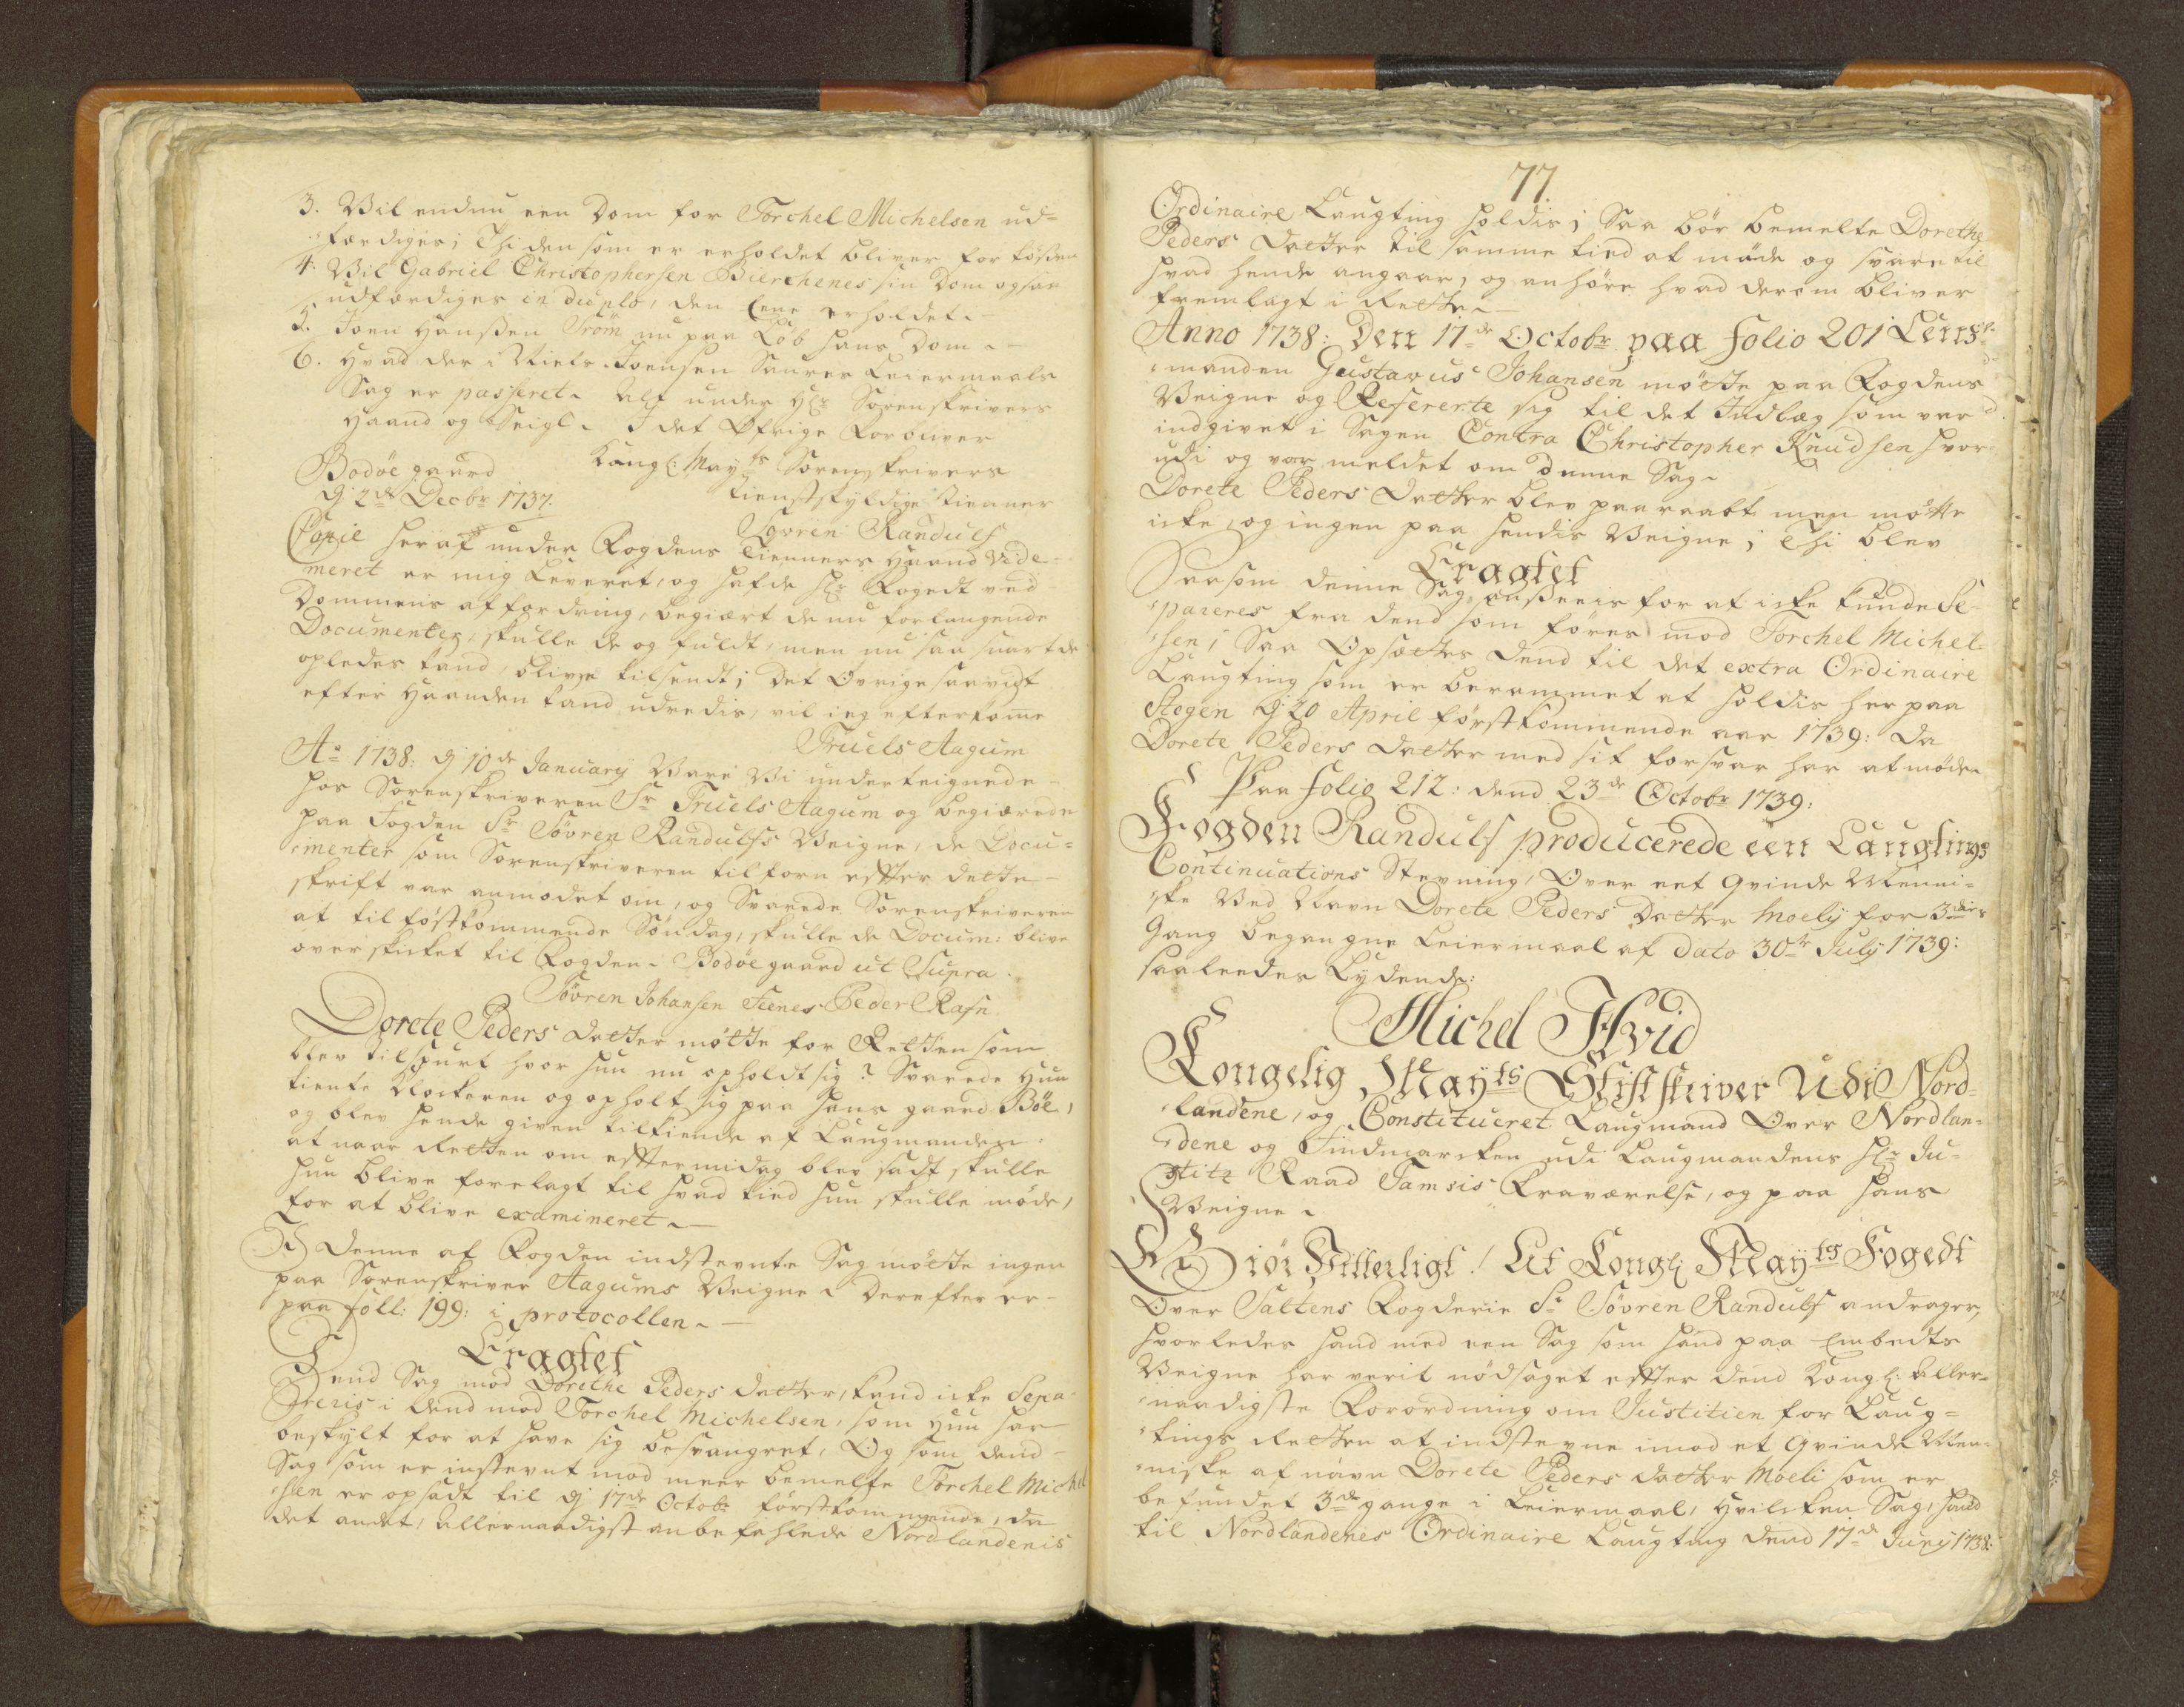 3. Vil endnu een Dom for Torchel Michelsen ud=
færdiges; Thi den som er erholdet bliver for
4. Vil Gabriel Christophersen Bierchenes sin Dom ogsaa
udfærdiges in duplo, den Eene erholdet.
5. Joen Hanssen Strøm nu paa hans Dom.
6. Hvad der i Niels Joensen Leiermaals
Sag er passeret. Alt under Hr. Sorenskrivers
Haand og Seigl. I det Øfrige Forbliver
Kongl: Mayts Sorenskrivers
Bodøe gaard
dj 2de Decbr 1737.
tienstskyldige tienner
Søvren Randulf
Copie her af under Fogdens Tienners Haand Vide-
meret er mig Leveret, og hafde Hr Fogedt ved
Dommens affordring, begiært de nu forlangende
Documenter, skulle de og fuldt, men nu saa snart de
opledes kand, blive tilsendt; Det Øvrige saavidt
efter Haanden kand udredis, vil ieg efterkome
Truels Aagum
Ao 1738: dj 10de Januarij Vare Vi underteignede
hos Sorenskriveren Sr Truels Aagum og begiærede
paa Fogden Sr Søvren Randulfs Veigne, de Docu=
menter som Sorenskriveren tilforn effter dette
skrift var anmodet om, og Svarede Sorenskriveren
at til førstkommende Søndag, skulle de Docum: blive
overskicket til Fogden. Bodøe gaard ut Supra.
Søvren Johansen Peder Rafn.
Dorete Peders Datter møtte for Retten som
blev tilspurt hvor hun nu opholdt sig? Svarede Hun
tiente Klockeren og opholt sig paa hans gaard Bøe,
og blev hende given tilkiende af Laugmanden:
at naar Retten om efftermidag blev sadt, skulle
hun blive forelagt til hvad tied hun skulle møde,
for at blive examineret.
I Denne af Fogden indstevnte Sag møtte ingen
paa Sorenskriver Aagums Veigne. Derefter er
paa foll: 199: i protocollen.
Eragtet
Dend Sag mod Dorethe Peders datter, kand icke Sepa-
reris i dend mod Torchel Michelsen, som Hun har
beskylt for at have sig besvangret, Og som dend
Sag som er instevnt mod meer bemelte Torchel Michel
sen er opsadt til dj 17de Octobr førstkommende, da
det andet, allernaadigst anbefahlede Nordlandenis
77
Ordinaire Laugting holdis; Saa bør bemelte Dorethe
Peders Datter til samme tied at møde og svare til
hvad hende angaar, og anhøre hvad derom bliver
fremlagt i Retten.
Anno 1738: Den 17de Octobr paa folio 201 Lens=
manden Gustavus Johansen møtte paa Fogdens
Veigne og Refererte sig til det Indlæg som var
indgivet i Sagen Contra Christopher Knudsen hvor
udi og var meldet om denne Sag.
Dorete Peders Datter blev paaraabt men møtte
icke, og ingen paa hendis Veigne; Thi blev
Eragtet
Saasom denne Sag ansees for at icke kunde Se-
pareres fra dend som føres mod Torchel Michel-
sen; Saa Opsættes dend til det extra Ordinaire
Laugting som er berammet at holdis her paa
Stegen dj 20 April førstkommende aar 1739: Da
Dorete Peders Datter med sit forsvar har at møde.
Paa folio 212: dend 23de Octobr 1739:
Fogden Randulf producerede een Laugtings
Continuations Stevning, Over eet Qvinde Menni-
ske Ved Navn Dorete Peders Datter Moelj for 3die
Gang begangne Leiermaal af dato 30te Julij 1739:
saaleedes Lydende:
Michel Hvid
Kongelig Mayts Stiftskriver Udi Nord-
landene, og Constitueret Laugmand Over Nordlan=
dene og Findmarcken udi Laugmandens Hr Ju-
stitz Raad Tamsis Fraværelse, og paa hans
Veigne.
Giør Vitterligt! At Kongl Mayts Fogedt
Over Saltens Fogderie Sr Søvren Randulf andrager,
hvorledes hand med een Sag som hand paa Embedts
Veigne har verit nødsaget effter dend Kongl: Aller=
naadigste Forordning om Justitien for Laug=
tings Retten at indstevne imod et Qvinde Men-
niske af navn Dorete Peders Datter Moeli som er
befundet 3de gange i Leiermaal, Hvilcken Sag, hand
til Nordlandenes Ordinaire Laugting dend 17de Junij 1738: